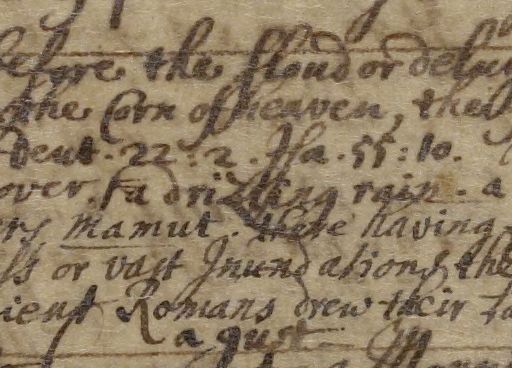 before the floud or delu
the Corn of heaven, the
Deut. 22:2. Isa. 55:10.
over. fa drizling rain. a
ers Mamut. there having
ss or vast Inundations, the
cient Romans drew their
a gust.